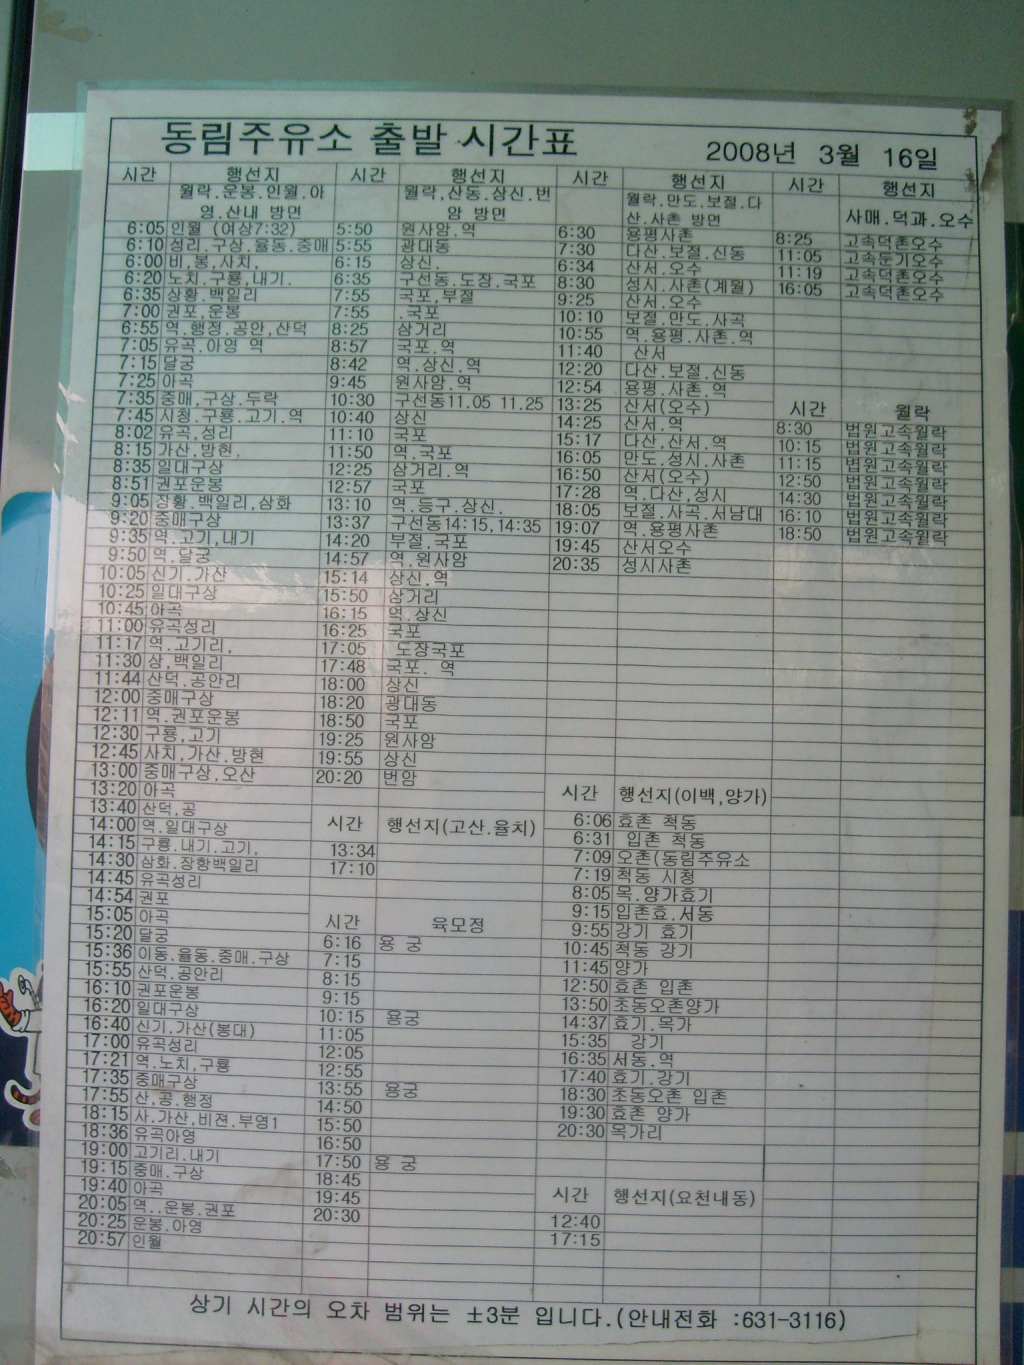 동림주유소 출발 시간표 2008년 3월 16일
시간 행선지 시간 행선지 시간 행선지 시간 행선지
월락.운봉.인월.아영.산내 방면
월락,산동.상신.번암 방면
월락.만도.보절.다산.사촌 방면
사매.덕과.오수
6:05 인월 (여상7:32)
6:10 성리.구상.율동.중매
6:00 비,봉.사치,
6:20 노치.구룡,내기.
6:35 상황.백일리
7:00 권포,운봉
6:55 역.행정.공안,산덕
7:05 유곡.아영 역
7:15 달궁
7:25 아곡
7:35 중매,구상.두락
7:45 시청.구룡.고기.역
8:02 유곡,성리
8:15 가산.방현,
8:35 일대구상
8:51 권포운봉
9:05 장황.백일리,삼화
9:20 중매구상
9:35 역.고기,내기
9:50 역.달궁
10:05 신기.가산
10:25 일대구상
10:45 아곡
11:00 유곡성리
11:17 역.고기리,
11:30 상,백일리
11:44 산덕.공안리
12:00 중매구상
12:11 역.권포운봉
12:30 구룡,고기
12:45 사치,가산.방현
13:00 중매구상,오산
13:20 아곡
13:40 산덕,공
14:00 역.일대구상
14:15 구룡.내기.고기,
14:30 삼화.장항백일리
14:45 유곡성리
14:54 권포
15:05 아곡
15:20 달궁
15:36 이동.율동.중매.구상
15:55 산덕.공안리
16:10 권포운봉
16:20 일대구상
16:40 신기.가산(봉대)
17:00 유곡성리
17:21 역.노치,구룡
17:35 중매구상
17:55 산,공.행정
18:15 사.가산,비젼.부영1
18:36 유곡아영
19:00 고기리.내기
19:15 중매.구상
19:40 아곡
20:05 역..운봉.권포
20:25 운봉.아영
20:57 인월
5:50 원사암.역
5:55 광대동
6:15 상신.
6:35 구선동.도장.국포
7:55 국포,부절
7:55 .국포
8:25 삼거리
8:57 국포.역
8:42 역.상신.역
9:45 원사암.역
10:30 구선동11.05 11.25
10:40 상신
11:10 국포
11:50 역.국포
12:25 삼거리.역
12:57 국포
13:10 역.등구.상신.
13:37 구선동14:15,14:35
14:20 부절.국포
14:57 역.원사암
15:14 상신.역
15:50 삼거리
16:15 역.상신
16:25 국포
17:05 도장국포
17:48 국포. 역
18:00 상신
18:20 광대동
18:50 국포
19:25 원사암
19:55 상신
20:20 번암
시간 행선지(고산.율치)
13:34
17:10
시간 육모정
6:16 용 궁
7:15
8:15
9:15
10:15 용궁
11:05
12:05
12:55
13:55 용궁
14:50
15:50
16:50
17:50 용 궁
18:45
19:45
20:30
6:30 용평사촌
7:30 다산.보절.신동
6:34 산서.오수
8:30 성시.사촌(계월)
9:25 산서.오수
10:10 보절.만도.사곡
10:55 역.용평.사촌.역
11:40 산서
12:20 다산.보절.신동
12:54 용평.사촌.역
13:25 산서(오수)
14:25 산서.역
15:17 다산,산서.역
16:05 만도.성시.사촌
16:50 산서(오수)
17:28 역.다산.성시
18:05 보절.사곡.서남대
19:07 역.용평사촌
19:45 산서오수
20:35 성시사촌
시간 행선지(이백,양가)
6:06 효촌 척동
6:31 입촌 척동
7:09 오촌(동림주유소
7:19 척동 시청
8:05 목.양가효기
9:15 입촌효.서동
9:55 강기 효기
10:45 척동 강기
11:45 양가
12:50 효촌 입촌
13:50 초동오촌양가
14:37 효기.목가
15:35 강기
16:35 서동.역
17:40 효기.강기
18:30 초동오촌 입촌
19:30 효촌 양가
20:30 목가리
시간 행선지(요천내동)
12:40
17:15
8:25 고속덕촌오수
11:05 고속둔기오수
11:19 고속덕촌오수
16:05 고속덕촌오수
시간 월락
8:30 법원고속월락
10:15 법원고속월락
11:15 법원고속월락
12:50 법원고속월락
14:30 법원고속월락
16:10 법원고속월락
18:50 법원고속월락
상기 시간의 오차 범위는 ±3분 입니다.(안내전화 :631-3116)